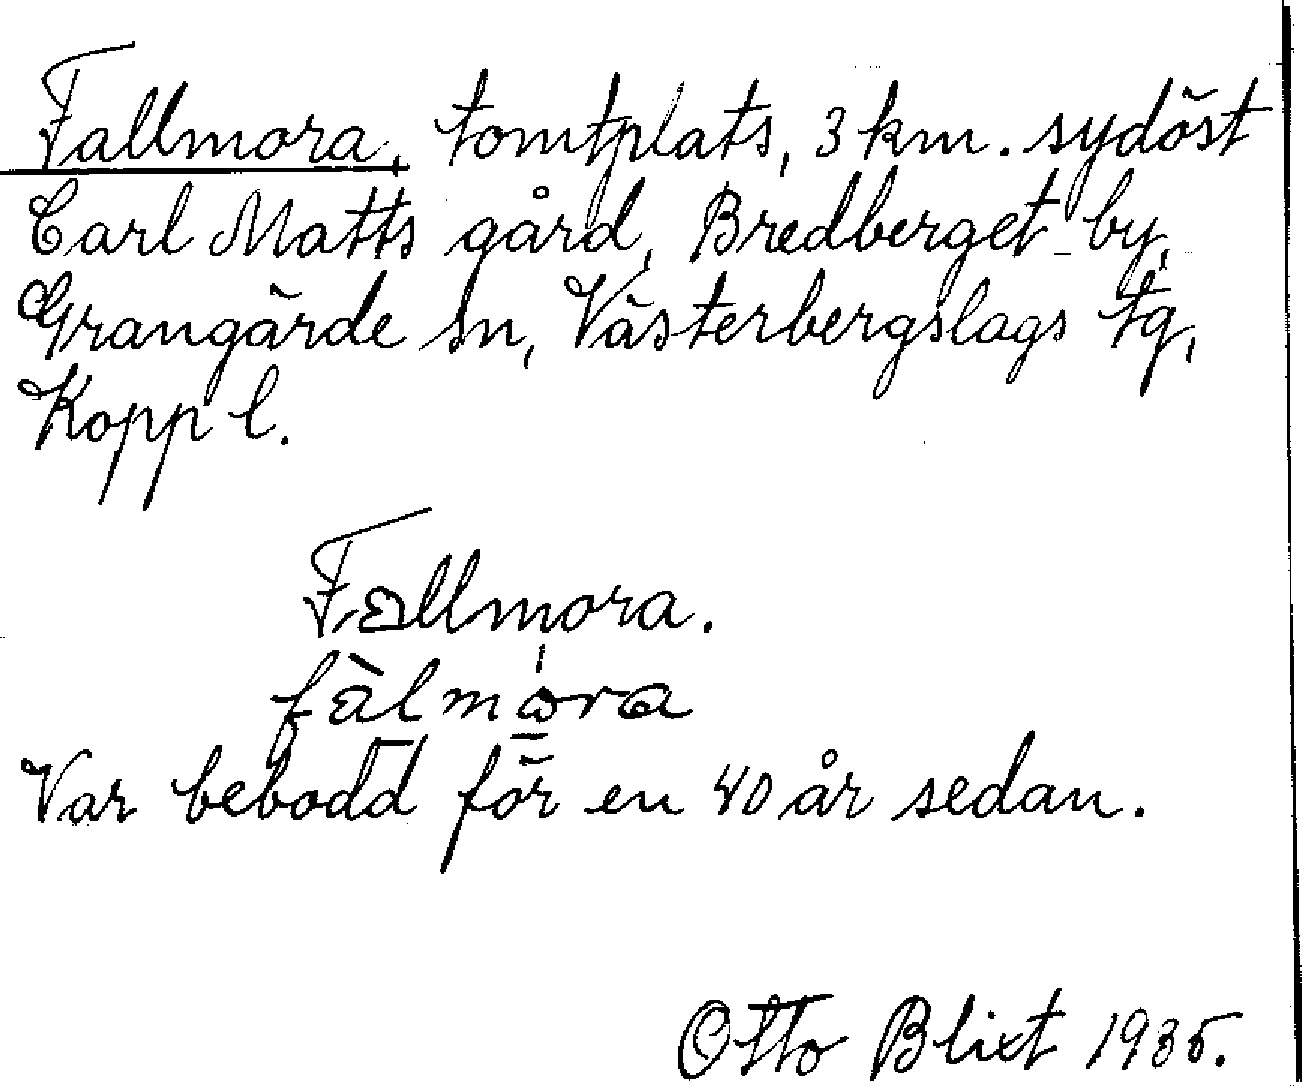 Fallmora, tomtplats, 3 km. sydöst
Carl Matts gård, Bredberget by,
Grangärde sn, Västerbergslags tg,
Kopp l.
Fallmora.
fàlmo̱ra
Var bebodd för en 40 år sedan.
Otto Blixt 1935.